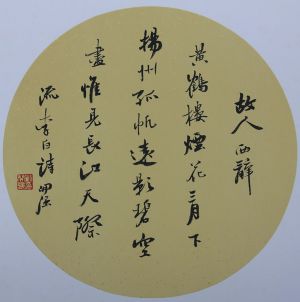 故人西辭
黃鶴樓煙花三月下
揚州孤帆遠影碧空
盡惟見長江天際
流李白詩